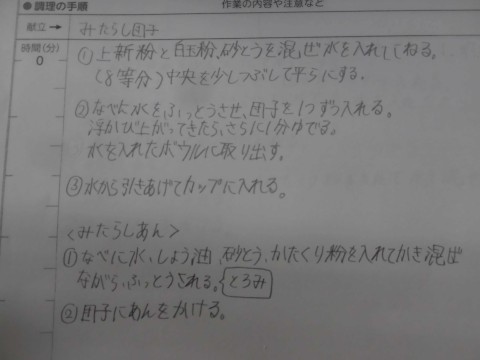 ●調理の手順 作業の内容や注意など
献立 → みたらし団子
時間(分)
0
①上新粉と白玉粉、砂とうを混ぜ水を入れてねる。
(8等分)中央を少しつぶして平らにする。
②なべに水をふっとうさせ、団子を1つずつ入れる。
浮かび上がってきたら、さらに1分ゆでる。
水を入れたボウルに取り出す。
③水から引きあげてカップに入れる。
<みたらしあん>
①なべに水、しょう油、砂とう、かたくり粉を入れてかき混ぜ
ながら、ふっとうされる。{とろみ
②団子にあんをかける。